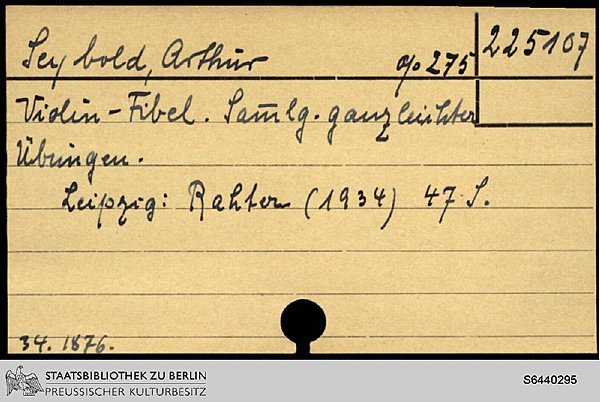 Seybold, Arthur op 275 225107
Violin-Fibel. Sam̅lg. ganz leichter
Übungen.
Leipzig: Rahter (1934) 47 S.
34. 1876.
STAATSBIBLIOTHEK ZU BERLIN
PREUSSISCHER KULTURBESITZ
S6440295